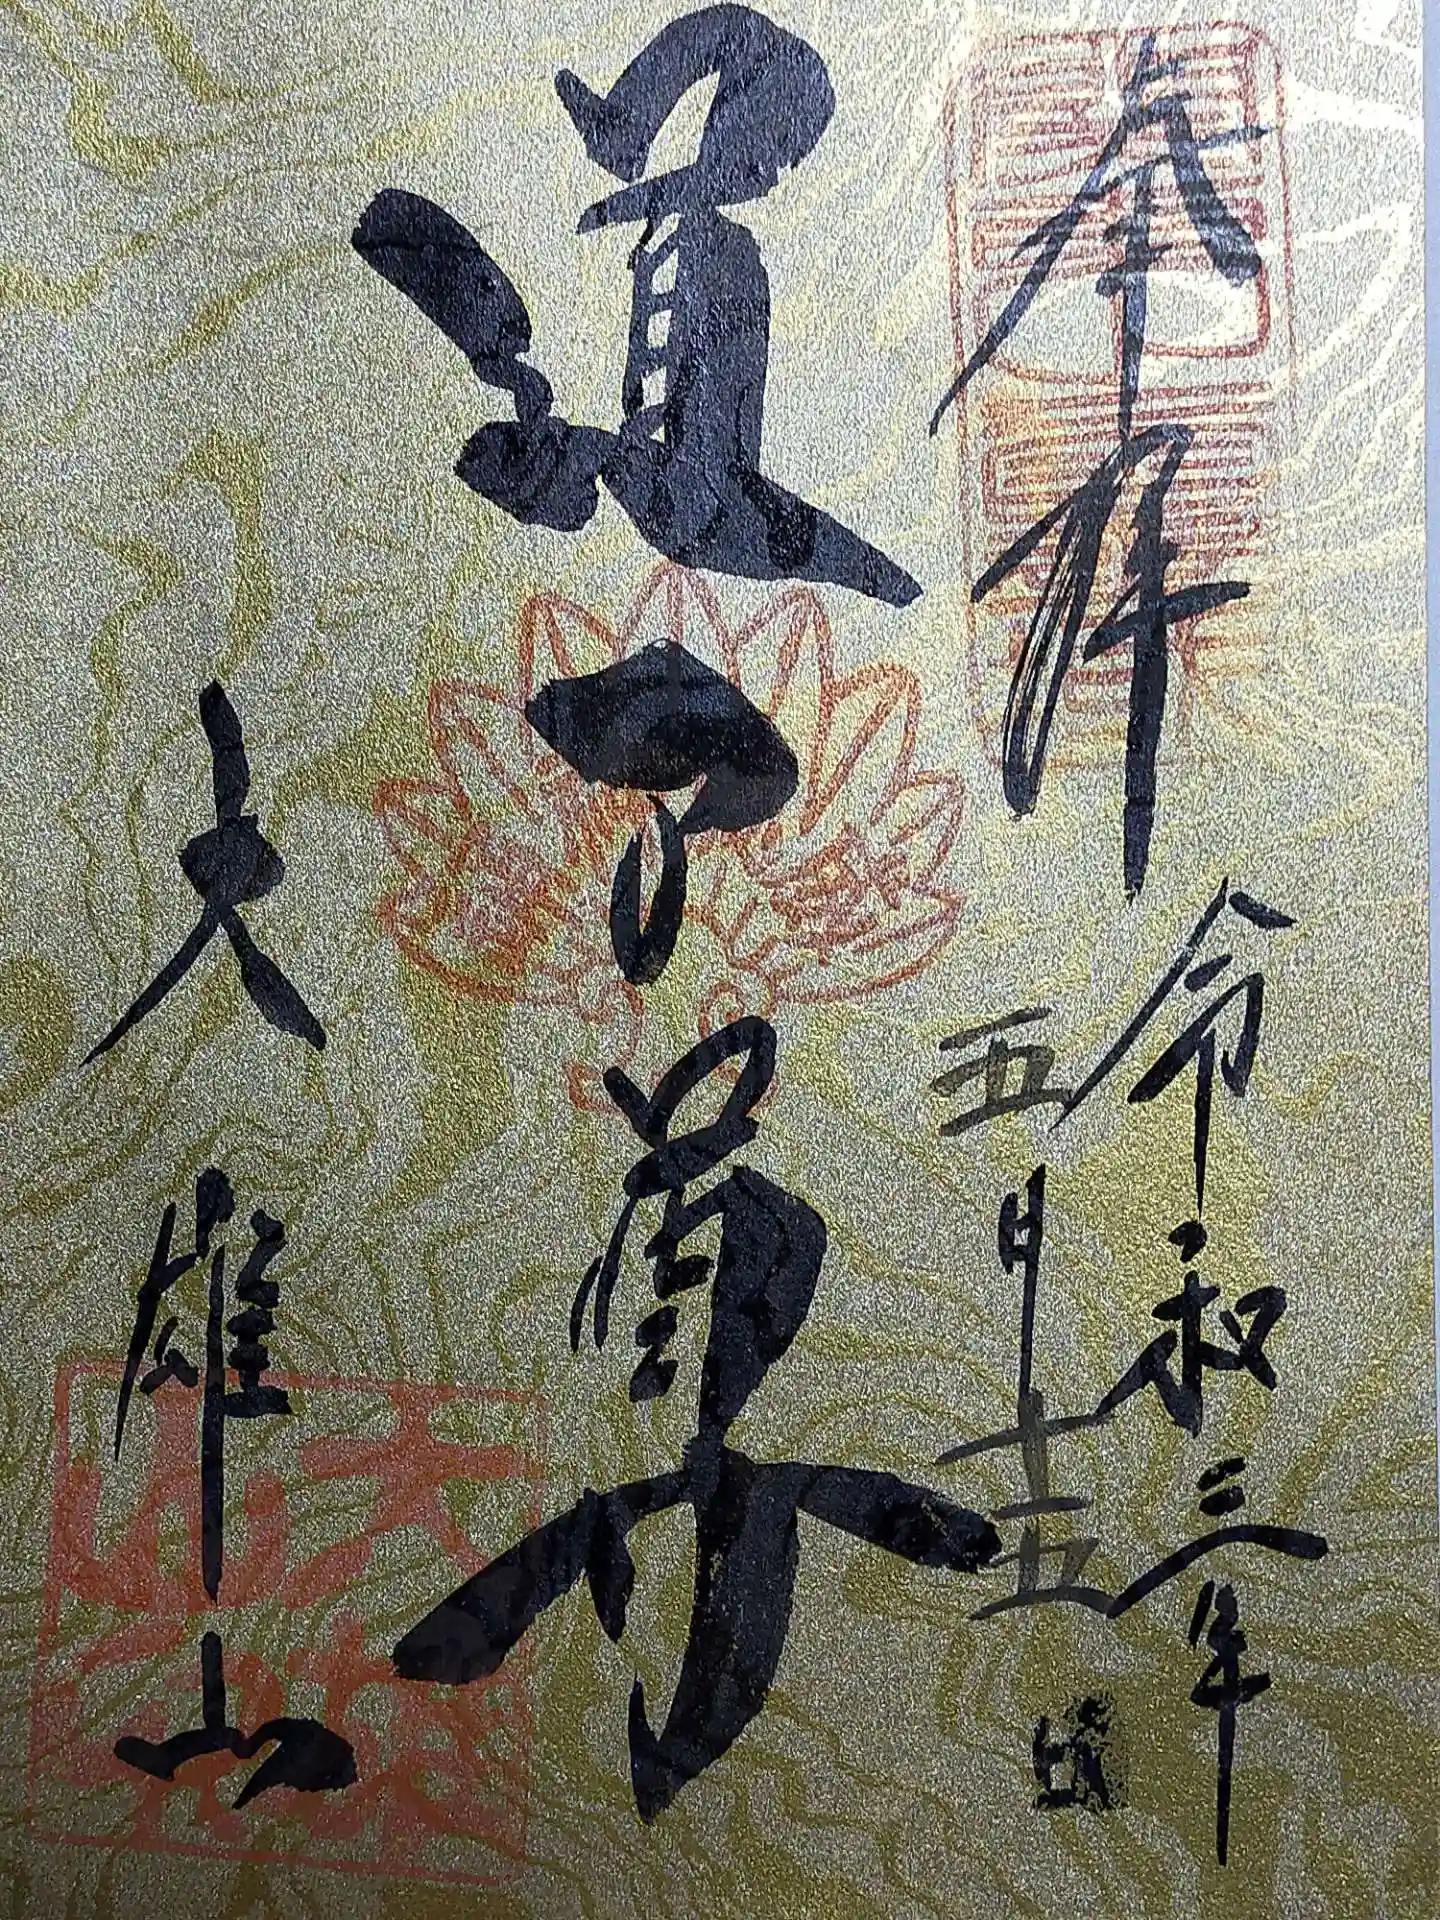 奉拝
令和三年
五月十五日
道了尊
大雄山